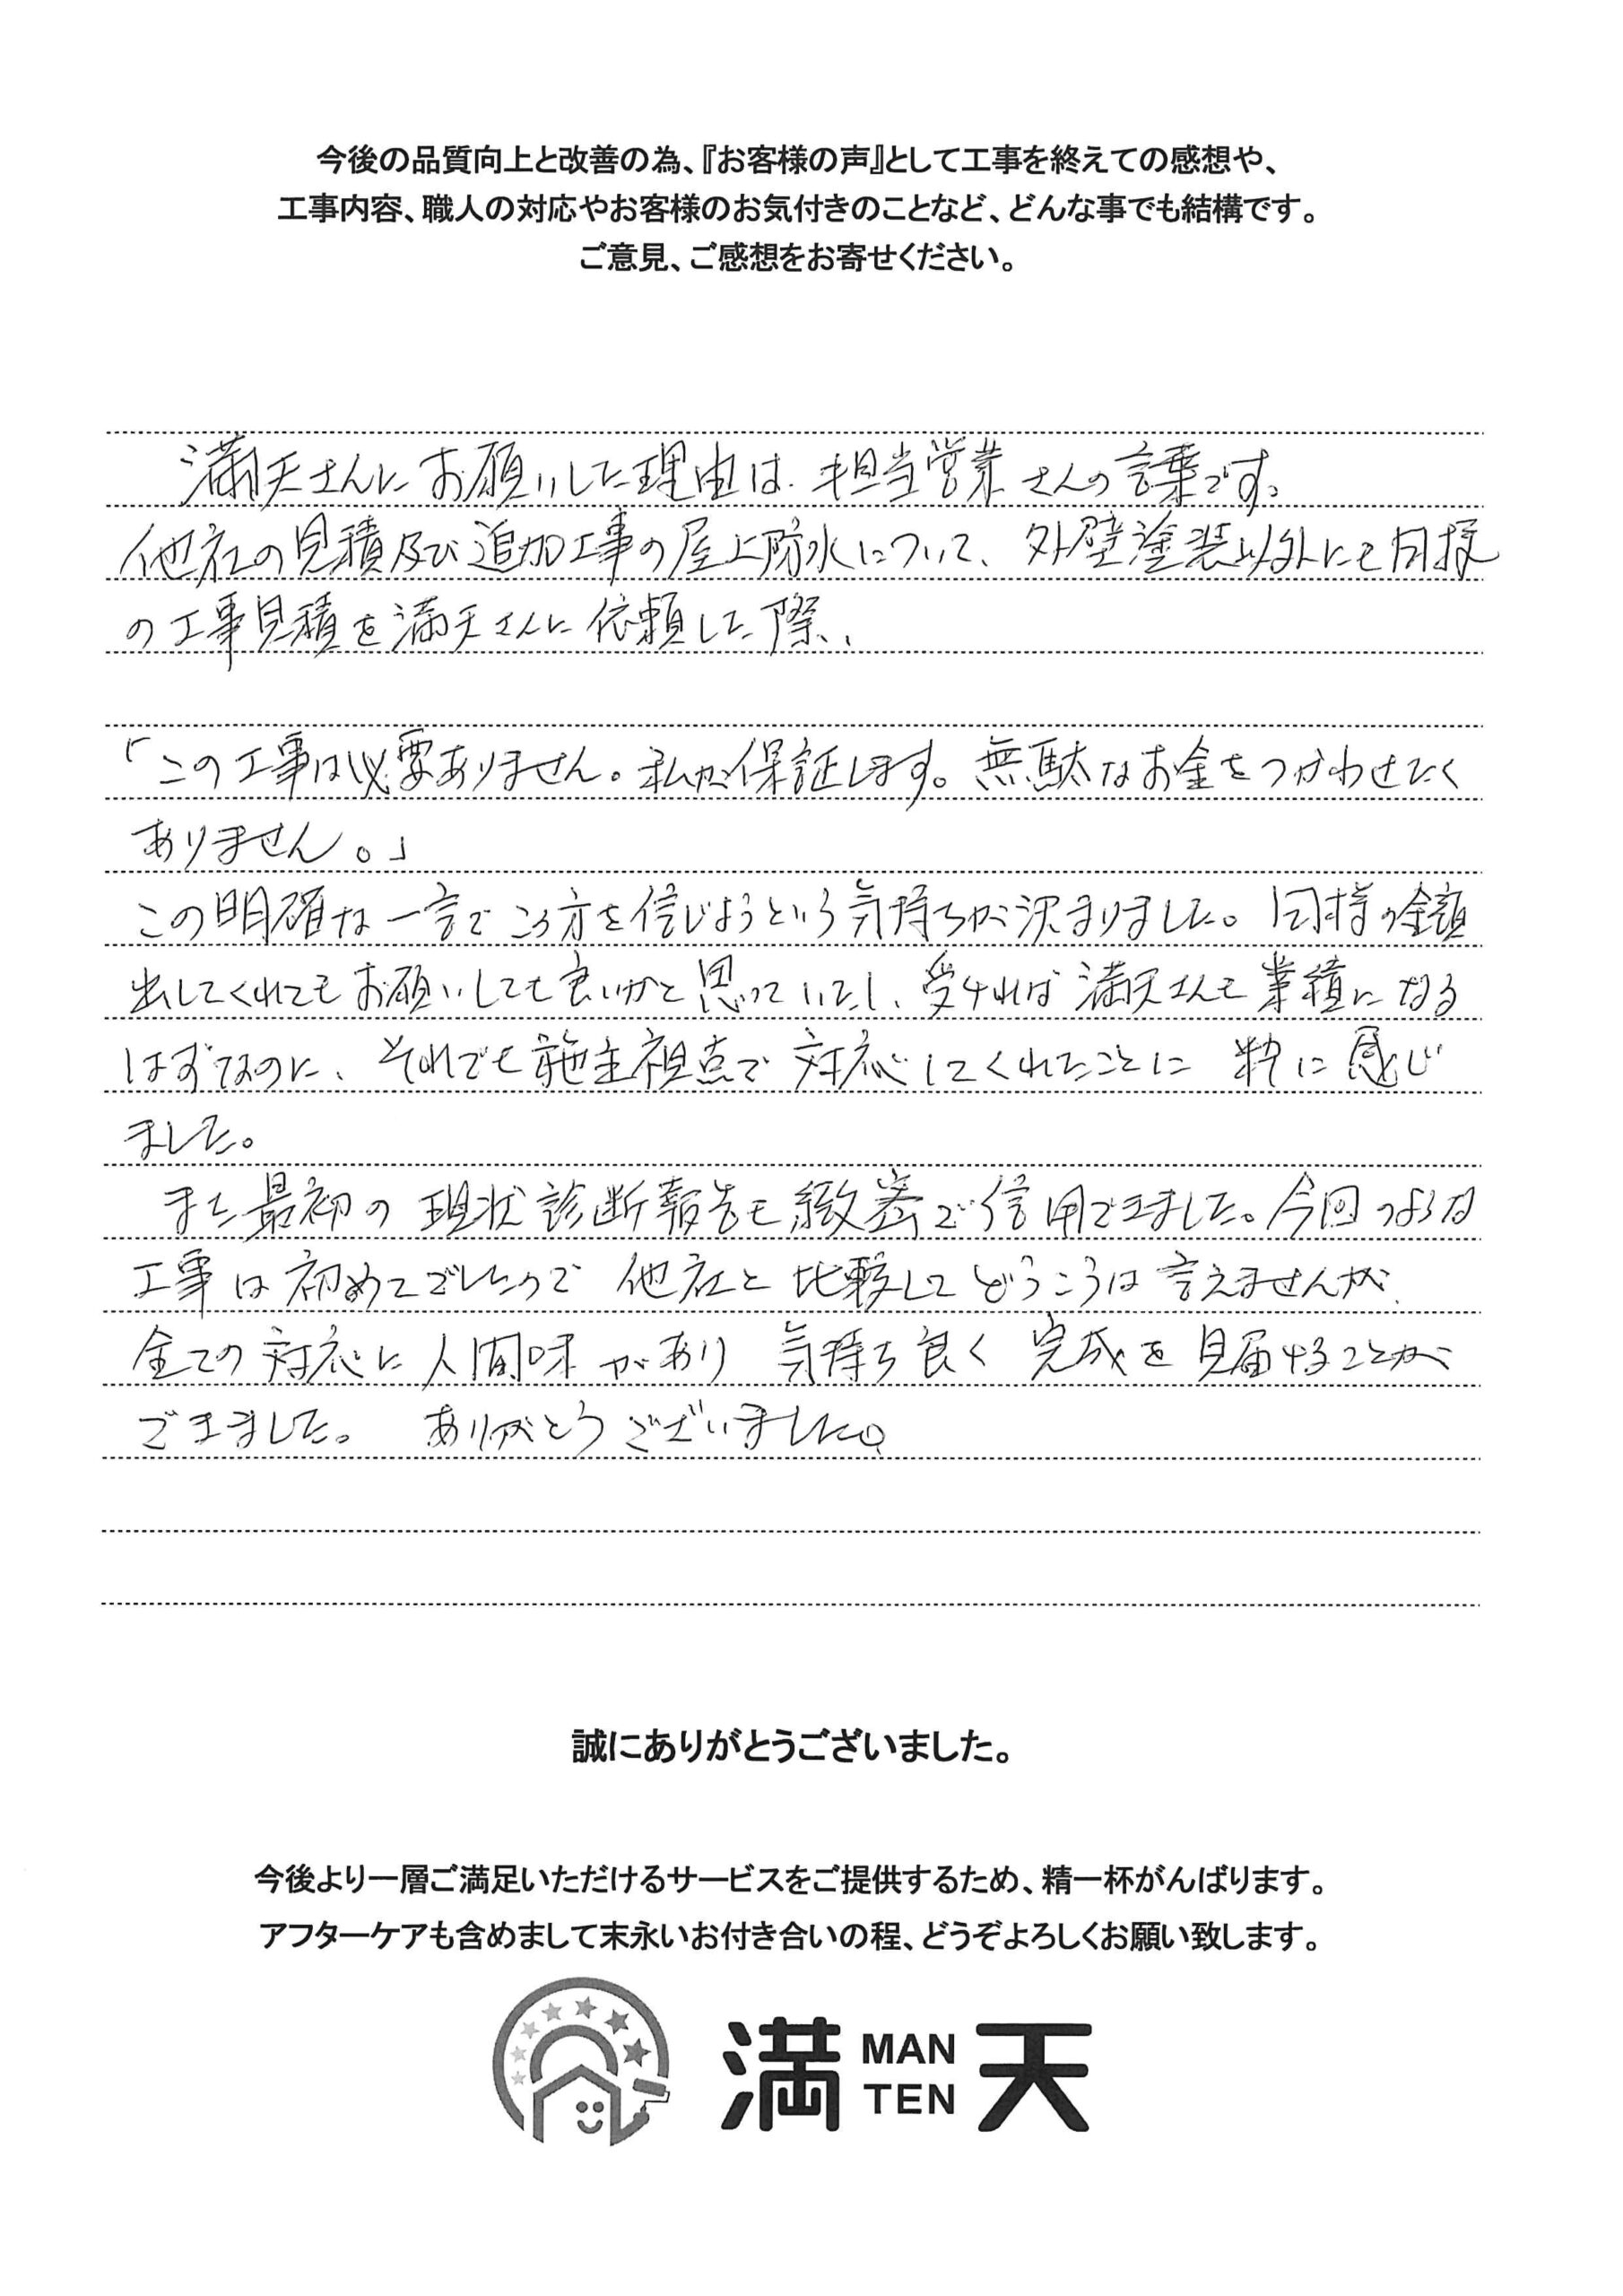 今後の品質向上と改善の為、『お客様の声』として工事を終えての感想や、
工事内容、職人の対応やお客様のお気付きのことなど、どんな事でも結構です。
ご意見、ご感想をお寄せください。
満天さんにお願いした理由は、担当営業さんの言葉です。
他社の見積及び追加工事の屋上防水について、外壁塗装以外にも同様
の工事見積を満天さんに依頼した際、
「この工事は必要ありません。私が保証します。無駄なお金をつかわせたく
ありません。」
この明確な一言でこの方を信じようという気持ちが決まりました。同様の金額
出してくれてもお願いしても良いかと思っていたし、受ければ満天さんも業績になる
はずなのに、それでも施主視点で対応してくれたことに粋に感じ
ました。
また最初の現状診断報告も緻密で信用できました。今回のような
工事は初めてでしたので他社と比較してどうこうは言えませんが、
全ての対応に人間味があり気持ち良く完成を見届けることが
できました。ありがとうございました。
誠にありがとうございました。
今後より一層ご満足いただけるサービスをご提供するため、精一杯がんばります。
アフターケアも含めまして末永いお付き合いの程、どうぞよろしくお願い致します。
満天 MAN TEN